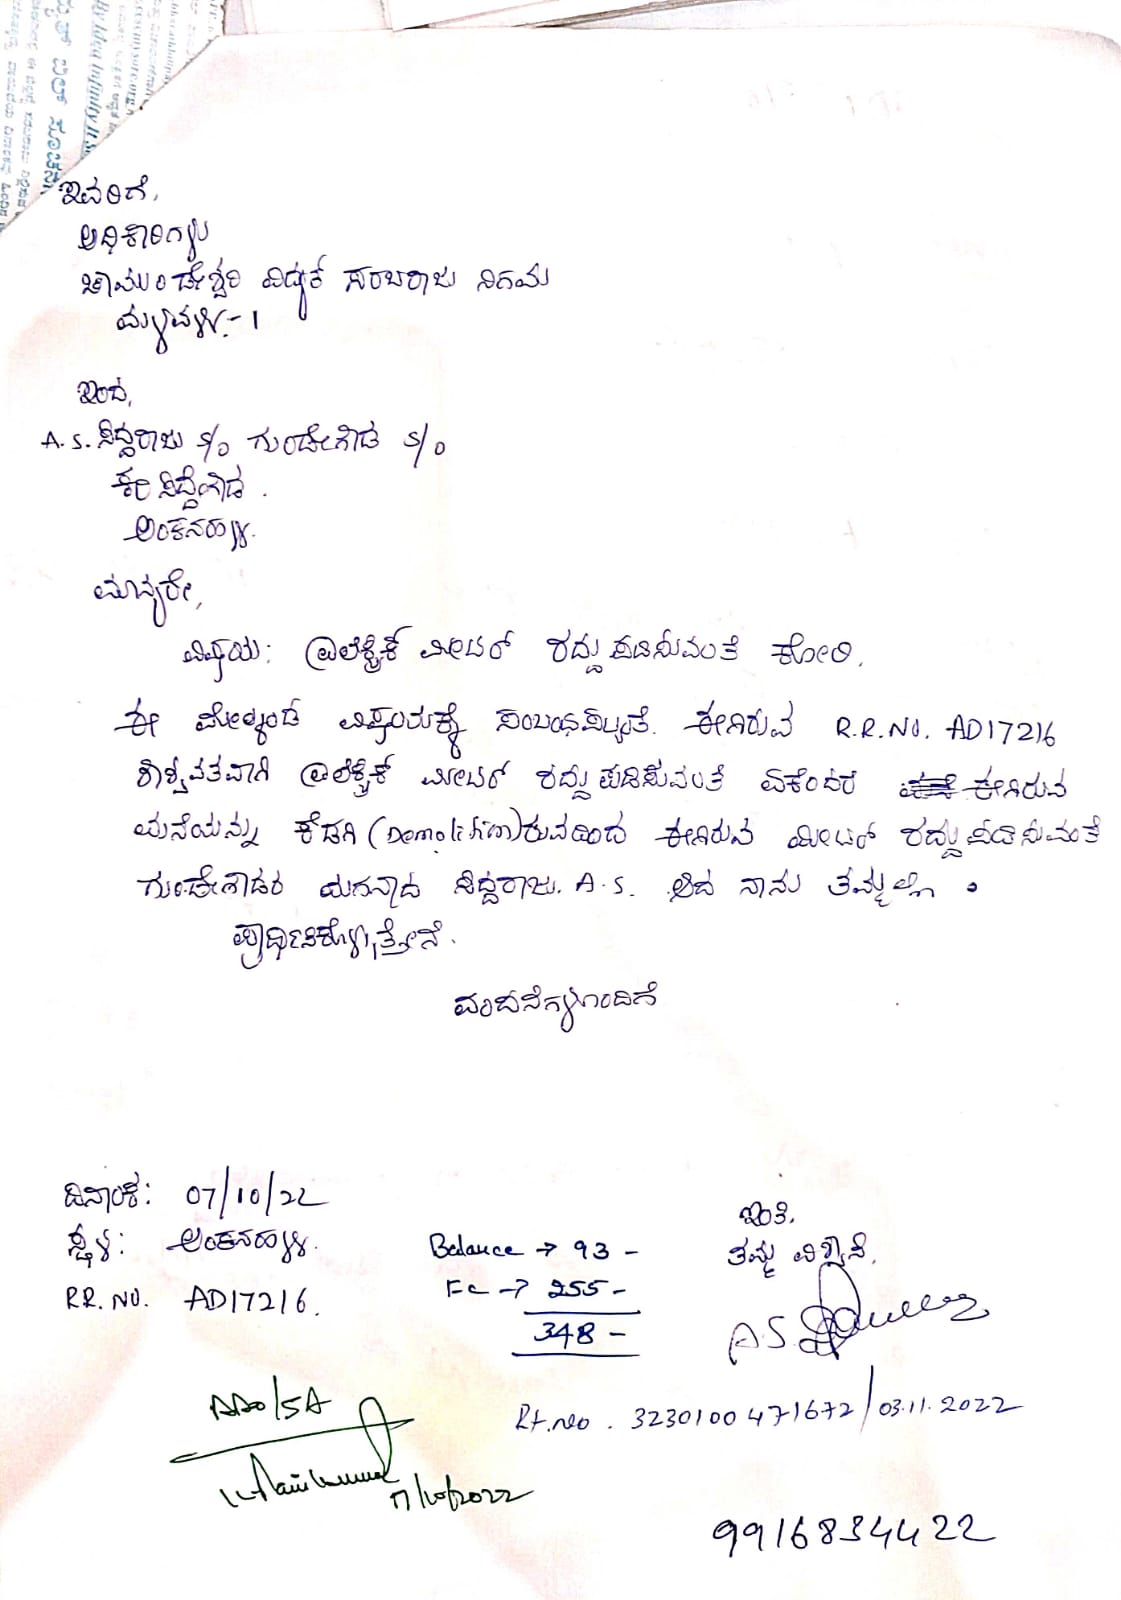 ಇವರಿಗೆ,
ಅಧಿಕಾರಿಗಳು
ಚಾಮುಂಡೇಶ್ವರಿ ವಿದ್ಯುತ್ ಸರಬರಾಜು ನಿಗಮ
ಮಳವಳ್ಳಿ-1
ಇಂದ,
A.S. ಸಿದ್ದರಾಜು S/o ಗುಂಡೇಗೌಡ S/o
ಸಿದ್ದೇಗೌಡ.
ಅಂಕನಹಳ್ಳಿ.
ಮಾನ್ಯರೇ,
ವಿಷಯ: ಮೀಟರ್ ರದ್ದು ಪಡಿಸುವಂತೆ ಕೋರಿ.
ಈ ಮೇಲ್ಕಂಡ ವಿಷಯಕ್ಕೆ ಈಗಿರುವ R.R.No. AD17216
ಶಾಶ್ವತವಾಗಿ ಮೀಟರ್ ರದ್ದು ಪಡಿಸುವಂತೆ ಏಕೆಂದರೆ ಈಗಿರುವ
ಮನೆಯನ್ನು ಕೆಡಗಿ (Demolition) ಈಗಿರುವ ಮೀಟರ್ ರದ್ದು ಪಡಿಸುವಂತೆ
ಗುಂಡೇಗೌಡರ ಮಗನಾದ ಸಿದ್ದರಾಜು. A.S. ಆದ ನಾನು ತಮ್ಮಲ್ಲಿ
ಪ್ರಾರ್ಥಿಸಿಕೊಳ್ಳುತ್ತೇನೆ.
ವಂದನೆಗಳೊಂದಿಗೆ
ದಿನಾಂಕ: 07/10/22
ಸ್ಥಳ: ಅಂಕನಹಳ್ಳಿ.
RR. No. AD17216.
Balance → 93 -
Fc → 255 -
348 -
ಇಂತಿ,
ತಮ್ಮ ವಿಶ್ವಾಸಿ,
A.S.
AAO/SA
17/10/2022
Rt.no. 3230100471672/03.11.2022
9916834422